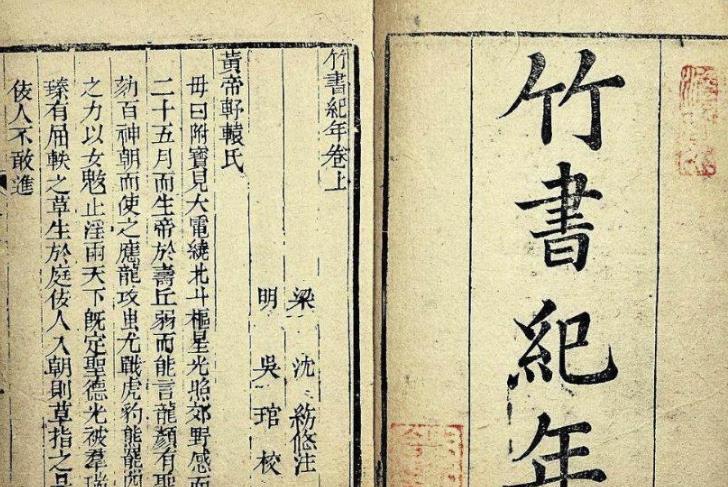 竹書紀年
竹書紀年卷上
梁 沈 注
明 吳 琯 校
黃帝軒轅氏
母曰附寶見大電繞北斗樞星光照郊野感而
二十五月而生帝於壽丘弱而能言龍顏有聖
劾百神朝而使之應龍攻蚩尤戰虎豹熊羆
之力以女魃止淫雨天下既定聖德光被羣瑞
臻有屈軼之草生於庭佞人入朝則草指之
佞人不敢進